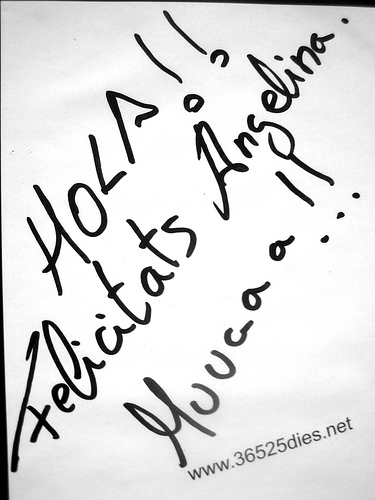 HOLA!!
Felicitats Angelina.
Muuaaa!!...
www.36525dies.net